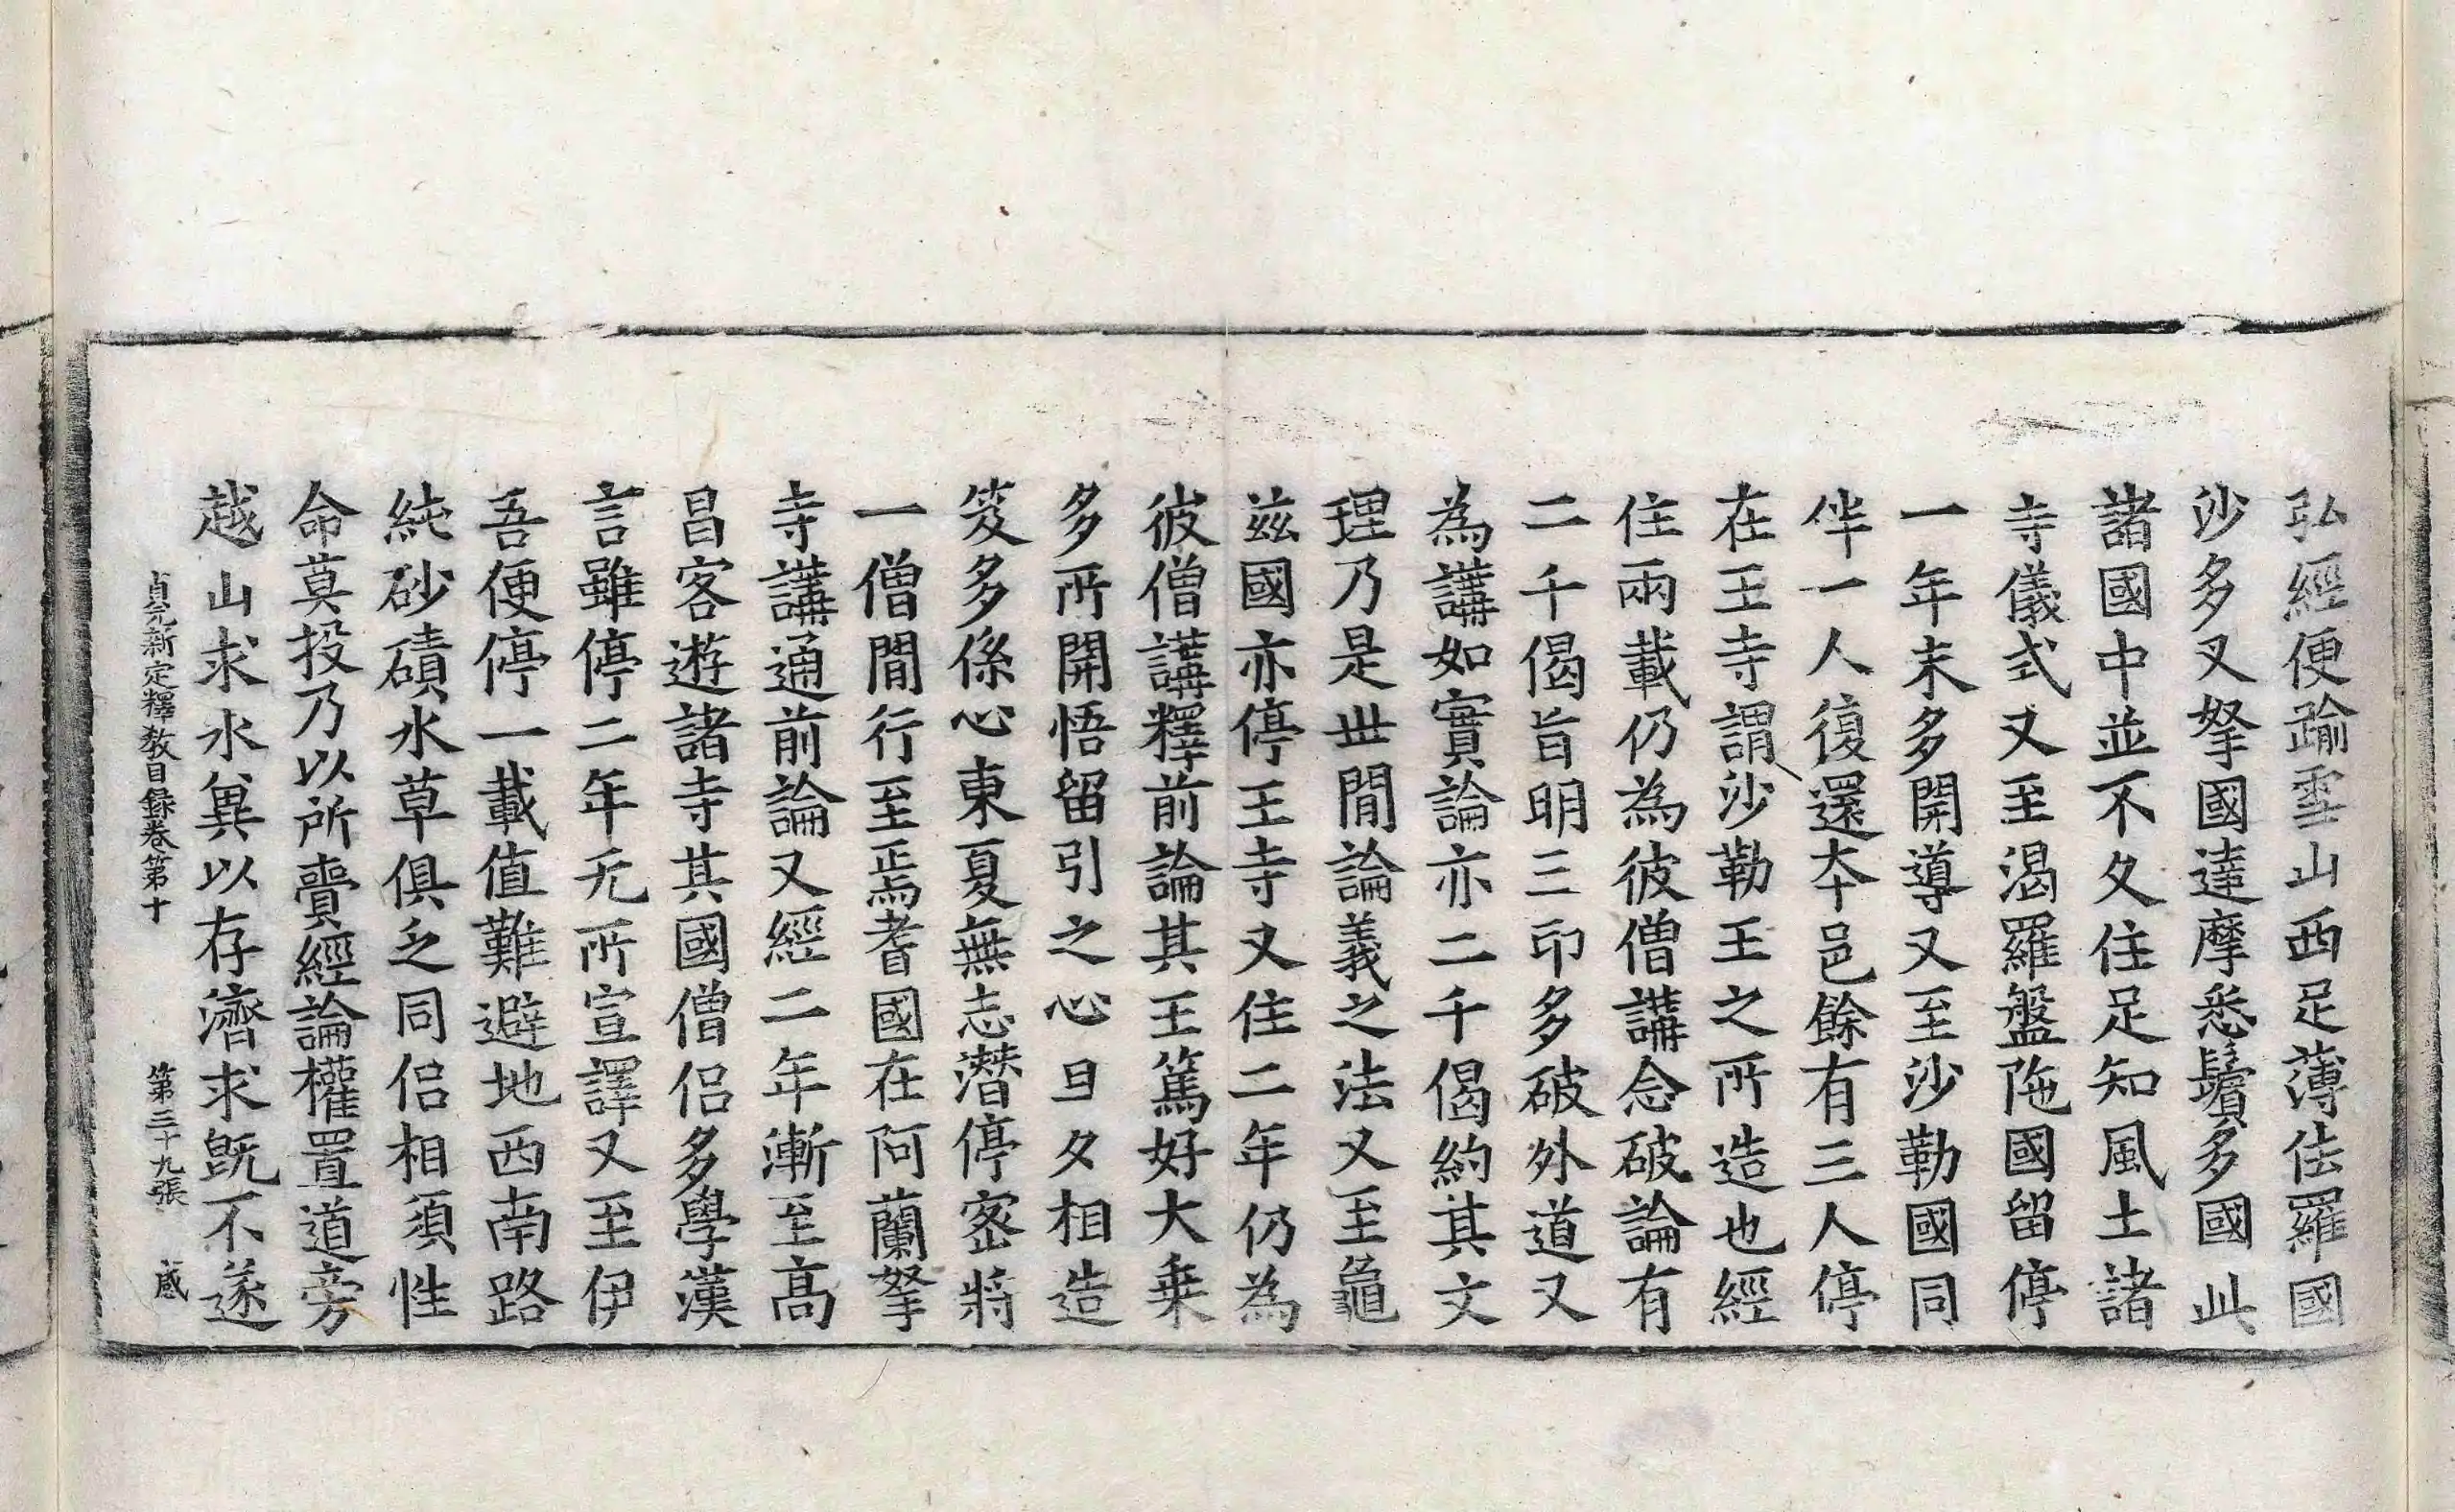 弘經便踰雪山西足薄佉羅國
沙多叉拏國達摩悉鬢多國此
諸國中並不久住足知風土諸
寺儀式又至渴羅盤陁國留停
一年未多開導又至沙勒國同
伴一人復還本邑餘有三人停
在王寺謂沙勒王之所造也經
住兩載仍為彼僧講念破論有
二千偈旨明三印多破外道又
為講如實論亦二千偈約其文
理乃是世間論義之法又至龜
茲國亦停王寺又住二年仍為
彼僧講釋前論其王篤好大乗
多所開悟留引之心旦夕相造
笈多係心東夏無志潜停密將
一僧間行至焉耆國在阿蘭拏
寺講通前論又經二年漸至高
昌客遊諸寺其國僧侣多學漢
言雖停二年无所宣譯又至伊
吾便停一載值難避地西南路
純砂磧水草俱乏同侣相須性
命莫投乃以所賷經論權置道旁
越山求水兾以存濟求旣不遂
貞元新定釋教目録卷第十 第三十九張 感